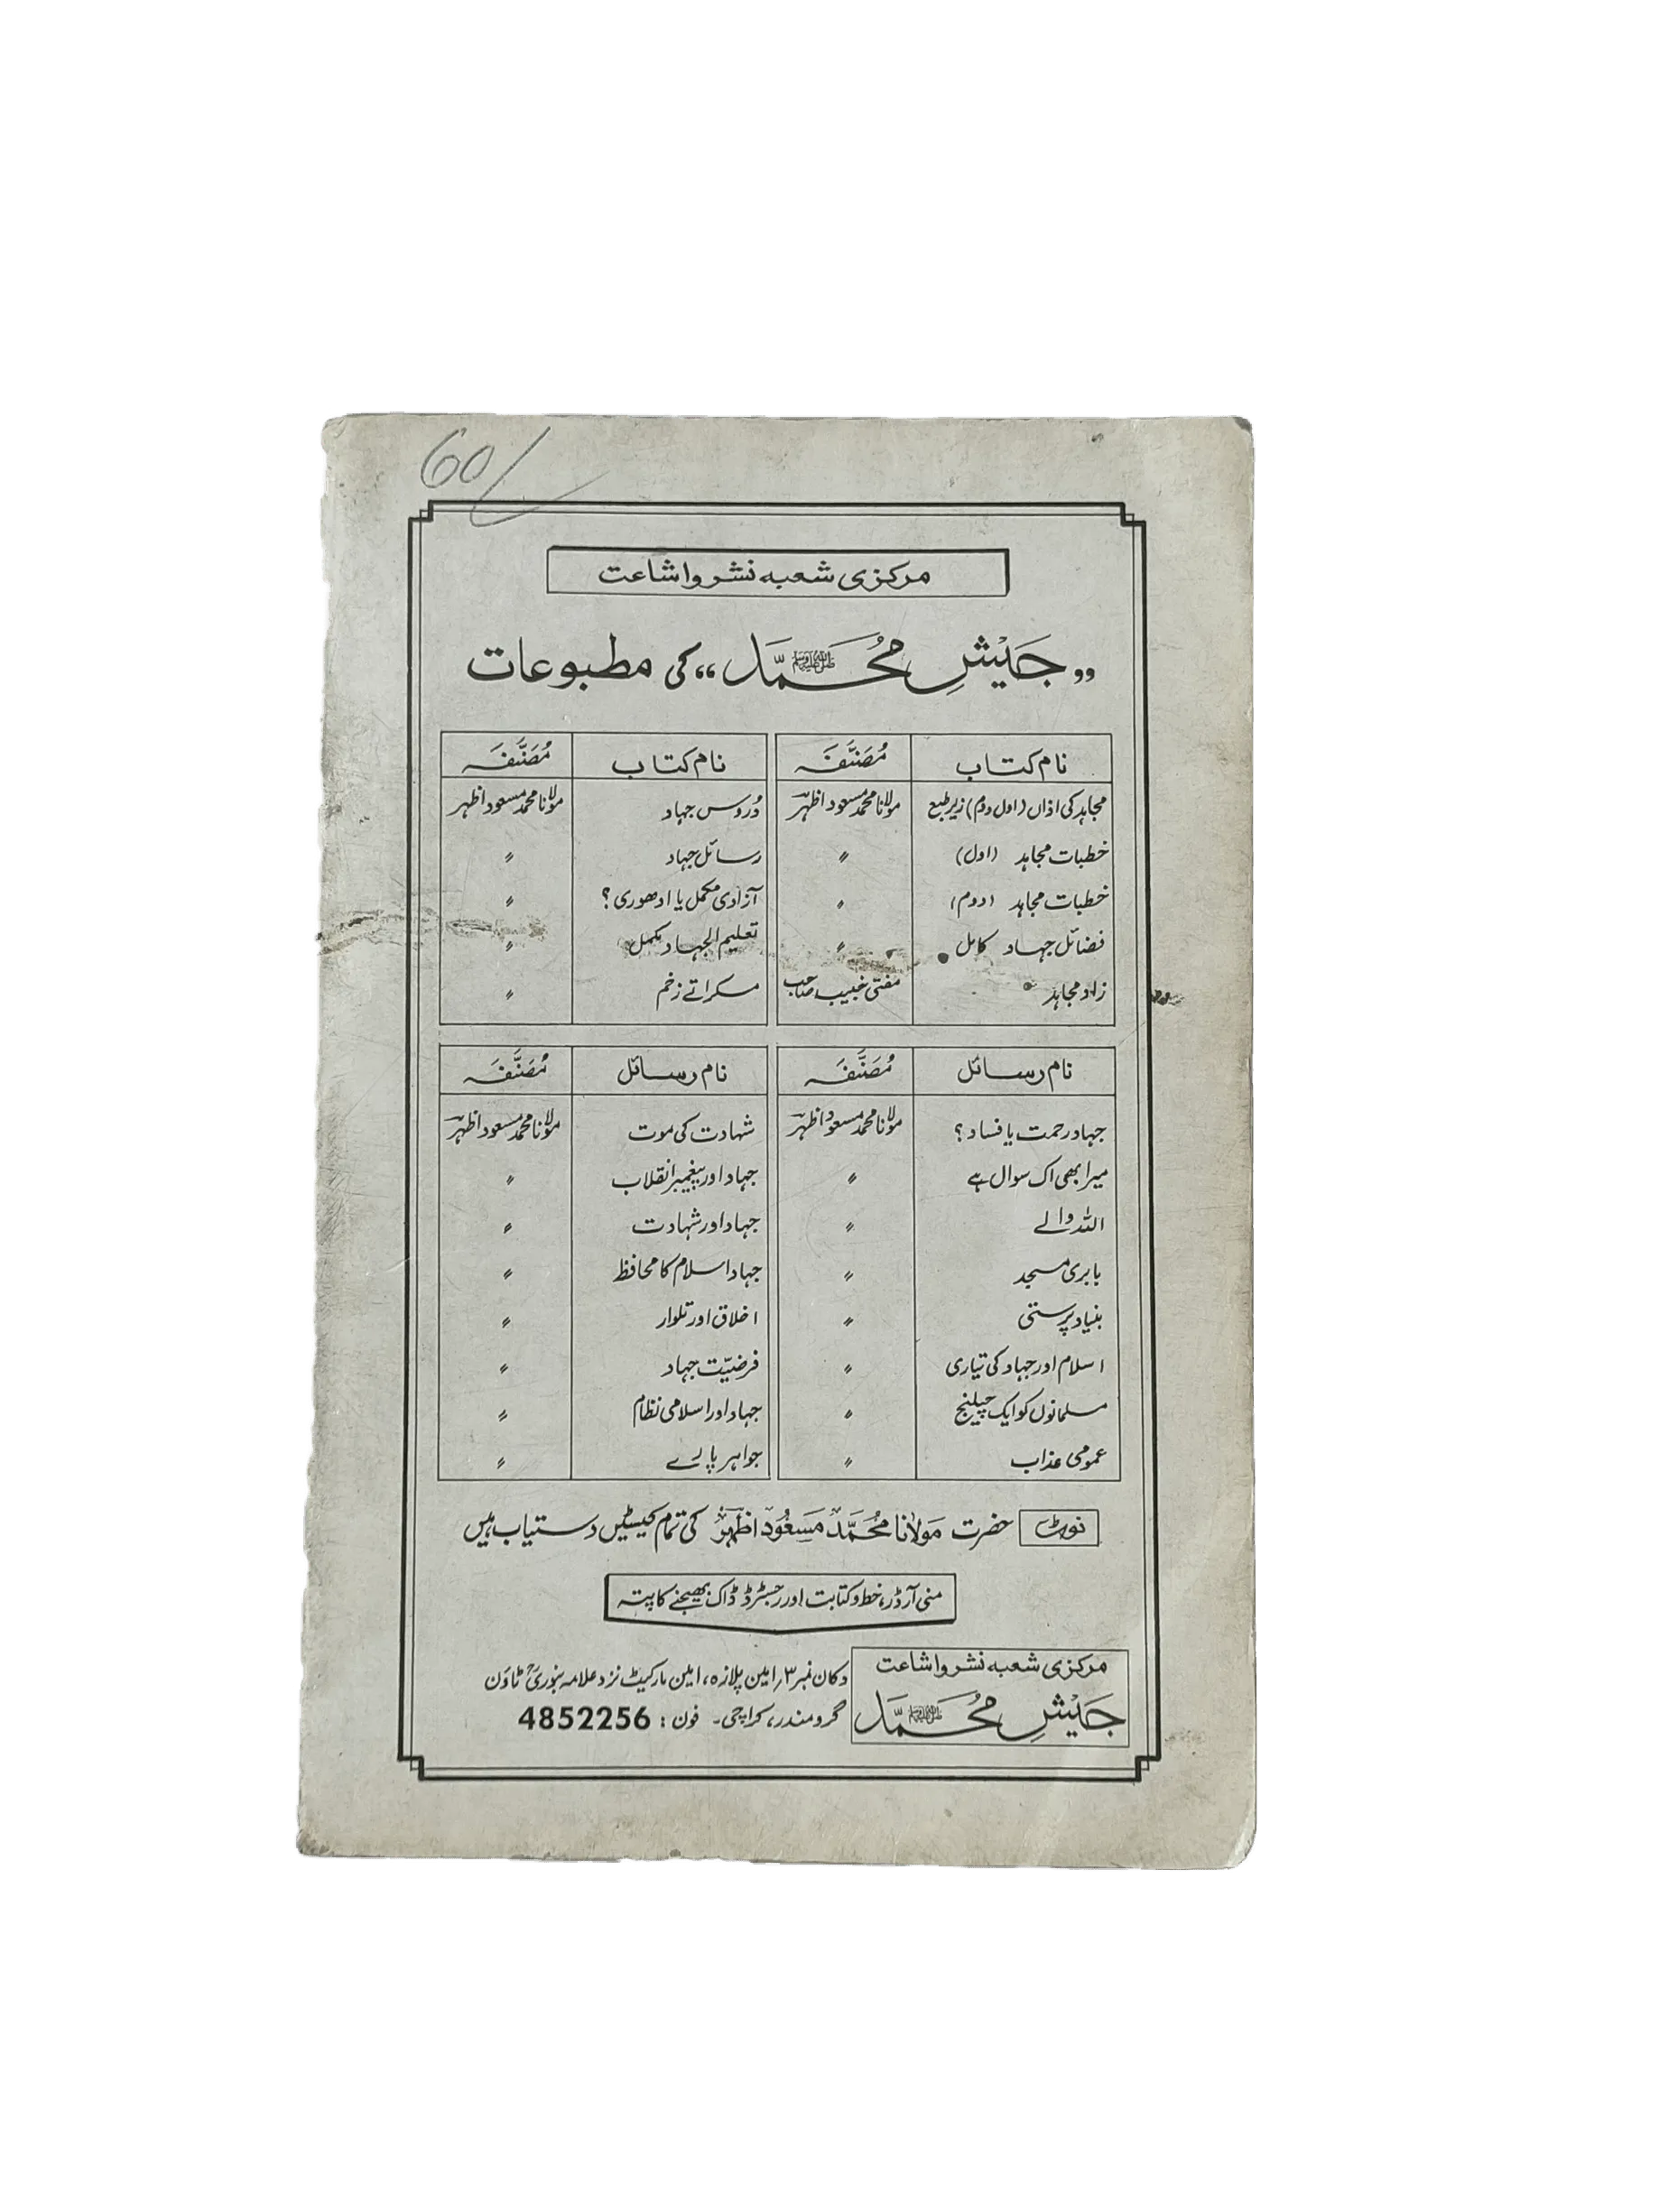 60/
مرکزی شعبہ نشر واشاعت
”جَیْشِ مُحَمَّد ﷺ“ کی مطبوعات
نام کتاب مُصَنَّفَہ نام کتاب مُصَنَّفَہ
مجاہد کی اذاں (اول دوم) زیر طبع مولانا محمد مسعود اظہر دُروس جہاد مولانا محمد مسعود اظہر
خطبات مجاہد (اول) 〃 رسائل جہاد 〃
خطبات مجاہد (دوم) 〃 آزادی مکمل یا ادھوری؟ 〃
فضائل جہاد کامل 〃 تعلیم الجہاد مکمل 〃
زاد مجاہد مفتی خبیب صاحب مسکراتے زخم 〃
نام رسائل مُصَنَّفَہ نام رسائل مُصَنَّفَہ
جہاد رحمت یا فساد؟ مولانا محمد مسعود اظہر شہادت کی موت مولانا محمد مسعود اظہر
میرا بھی اک سوال ہے 〃 جہاد اور پیغمبر انقلاب 〃
اللہ والے 〃 جہاد اور شہادت 〃
بابری مسجد 〃 جہاد اسلام کا محافظ 〃
بنیاد پرستی 〃 اخلاق اور تلوار 〃
اسلام اور جہاد کی تیاری 〃 فرضیّت جہاد 〃
مسلمانوں کو ایک چیلنج 〃 جہاد اور اسلامی نظام 〃
عمومی عذاب 〃 جواہر پارے 〃
نوٹ حضرت مَولانا مُحَمَّد مَسعُود اظہر کی تمام کیسٹیں دستیاب ہیں
منی آرڈر، خط و کتابت اور رجسٹرڈ ڈاک بھیجنے کا پتہ
مرکزی شعبہ نشر واشاعت
جَیْشِ مُحَمَّد ﷺ
دکان نمبر ۳، امین پلازہ، امین مارکیٹ نزد علامہ بنوریؒ ٹاؤن
گرومندر، کراچی۔ فون: 4852256